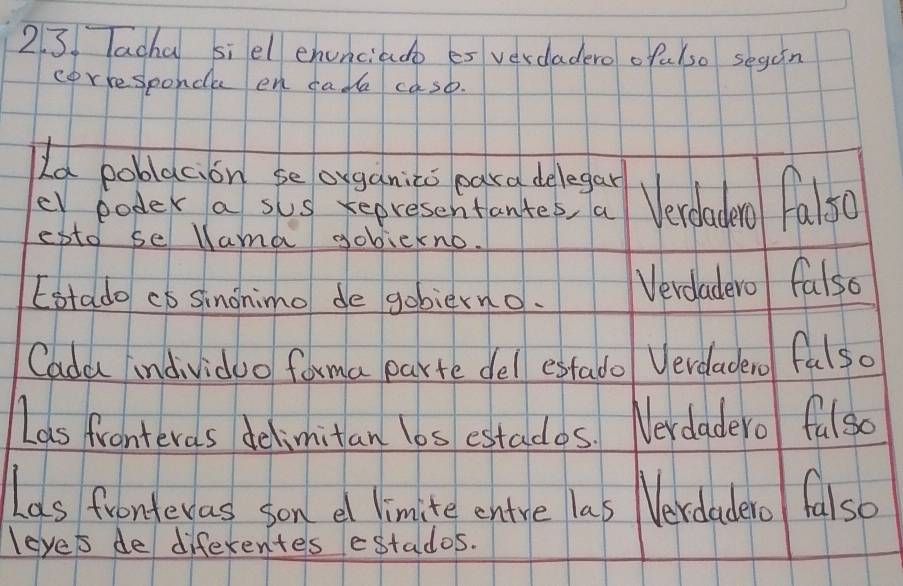 2.3. Tacha si el enunciado es verdadero o falso según
corresponda en cada caso.
La población se organizó para delegar
el poder a sus representantes, a
esto se llama gobierno.
Verdadero falso
Estado es sinónimo de gobierno.
Verdadero falso
Cada individuo forma parte del estado
Verdadero falso
Las fronteras delimitan los estados.
Verdadero falso
Las fronteras son el límite entre las
leyes de diferentes estados.
Verdadero falso